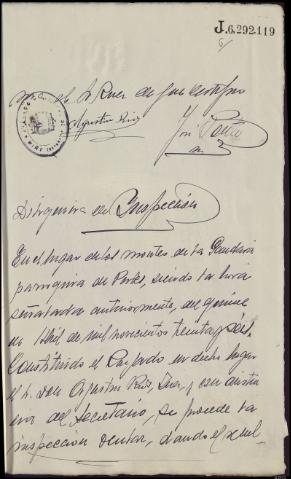 J.6.292.119
S. S. el Sr. Juez de que certifico
Agustin Ruiz
José
Diligencia de Inspección
En el lugar de los montes de la
parroquia de siendo la hora
señalada anteriormente, del quince
de Abril de mil novecientos treinta y seis
Constituido el Juzgado en dicho lugar
el S. Don Agustin Ruiz, Juez, y con asisten
cia del Secretario, se procede a la
inspección ocular, dando el resul-